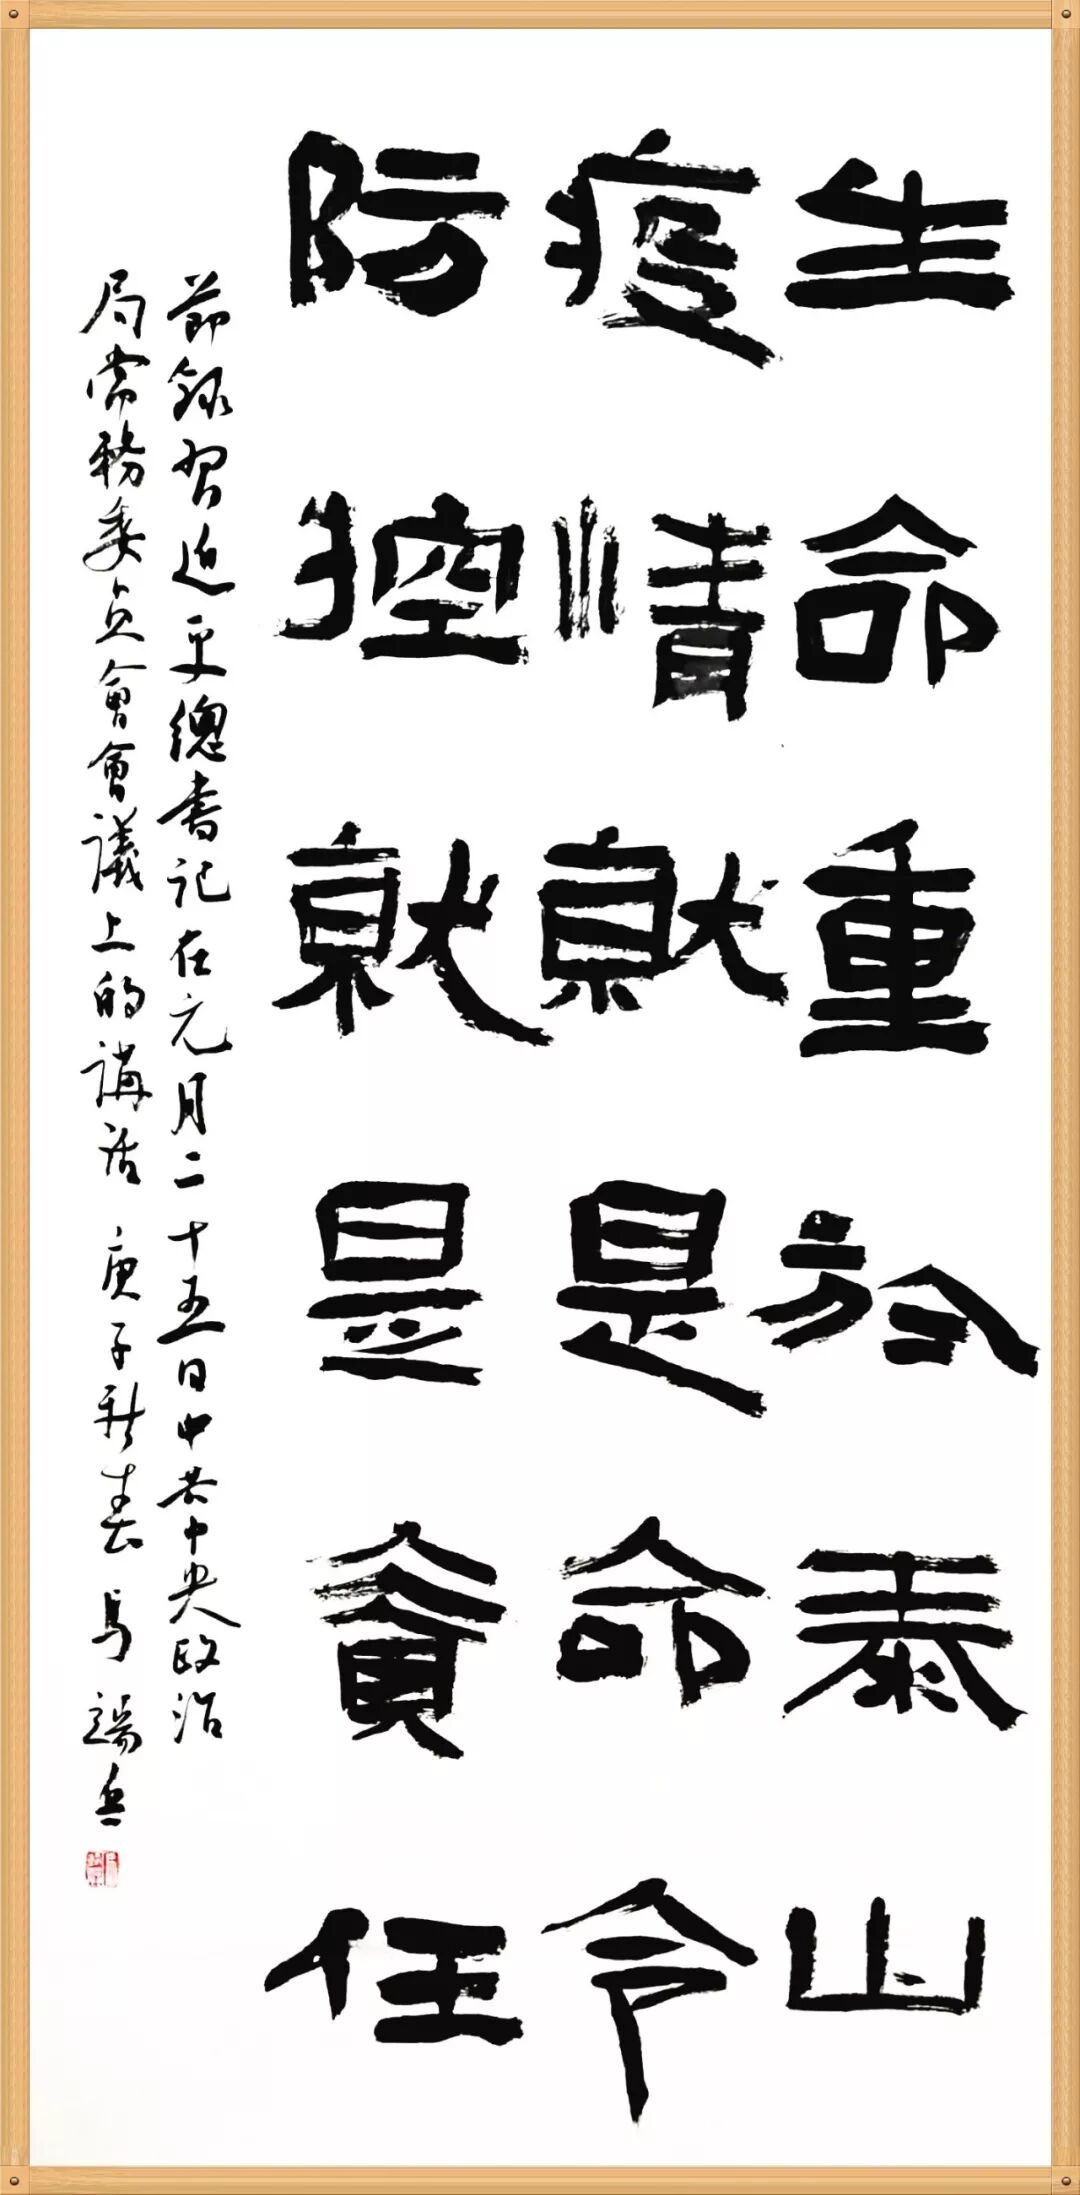 生命重於泰山
疫情就是命令
防控就是責任
節録習近平總書記在元月二十五日中共中央政治
局常務委员會會議上的講話 庚子新春 马端